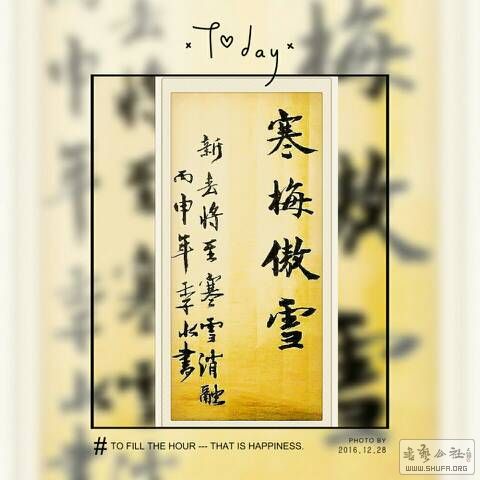 Today
寒梅傲雪
新去將至寒雪消融
丙申年季收書
# TO FILL THE HOUR --- THAT IS HAPPINESS.
PHOTO BY
2016.12.28
书艺公社
WWW.SHUFA.ORG